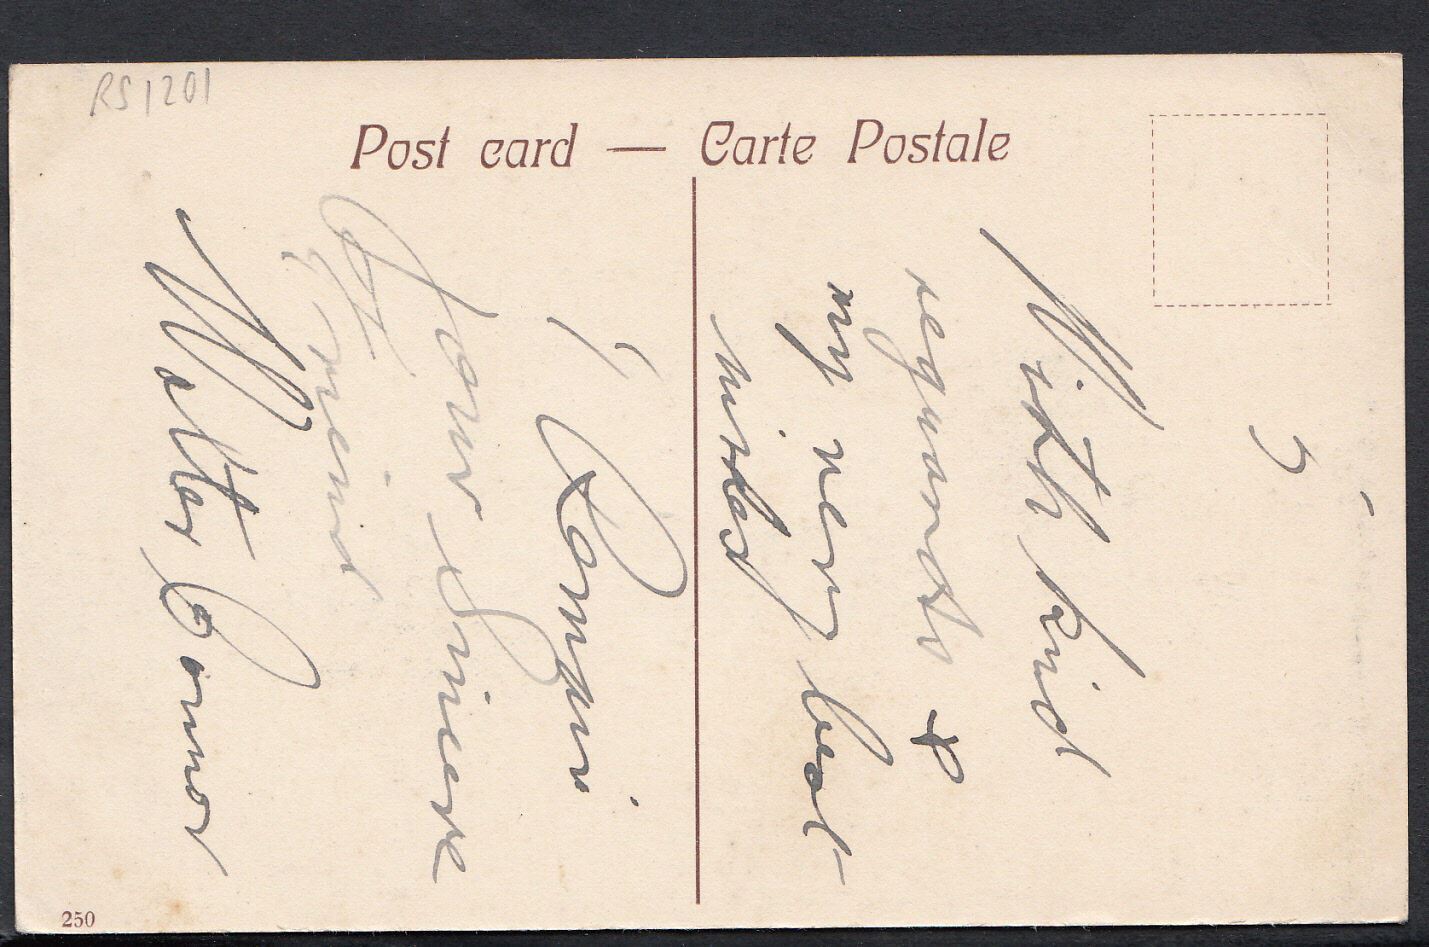 RS1201
Post card — Carte Postale
5
With kind
regards &
my very best
wishes
I Remain
Your Sincere
Old Friend
Walter Connor
250